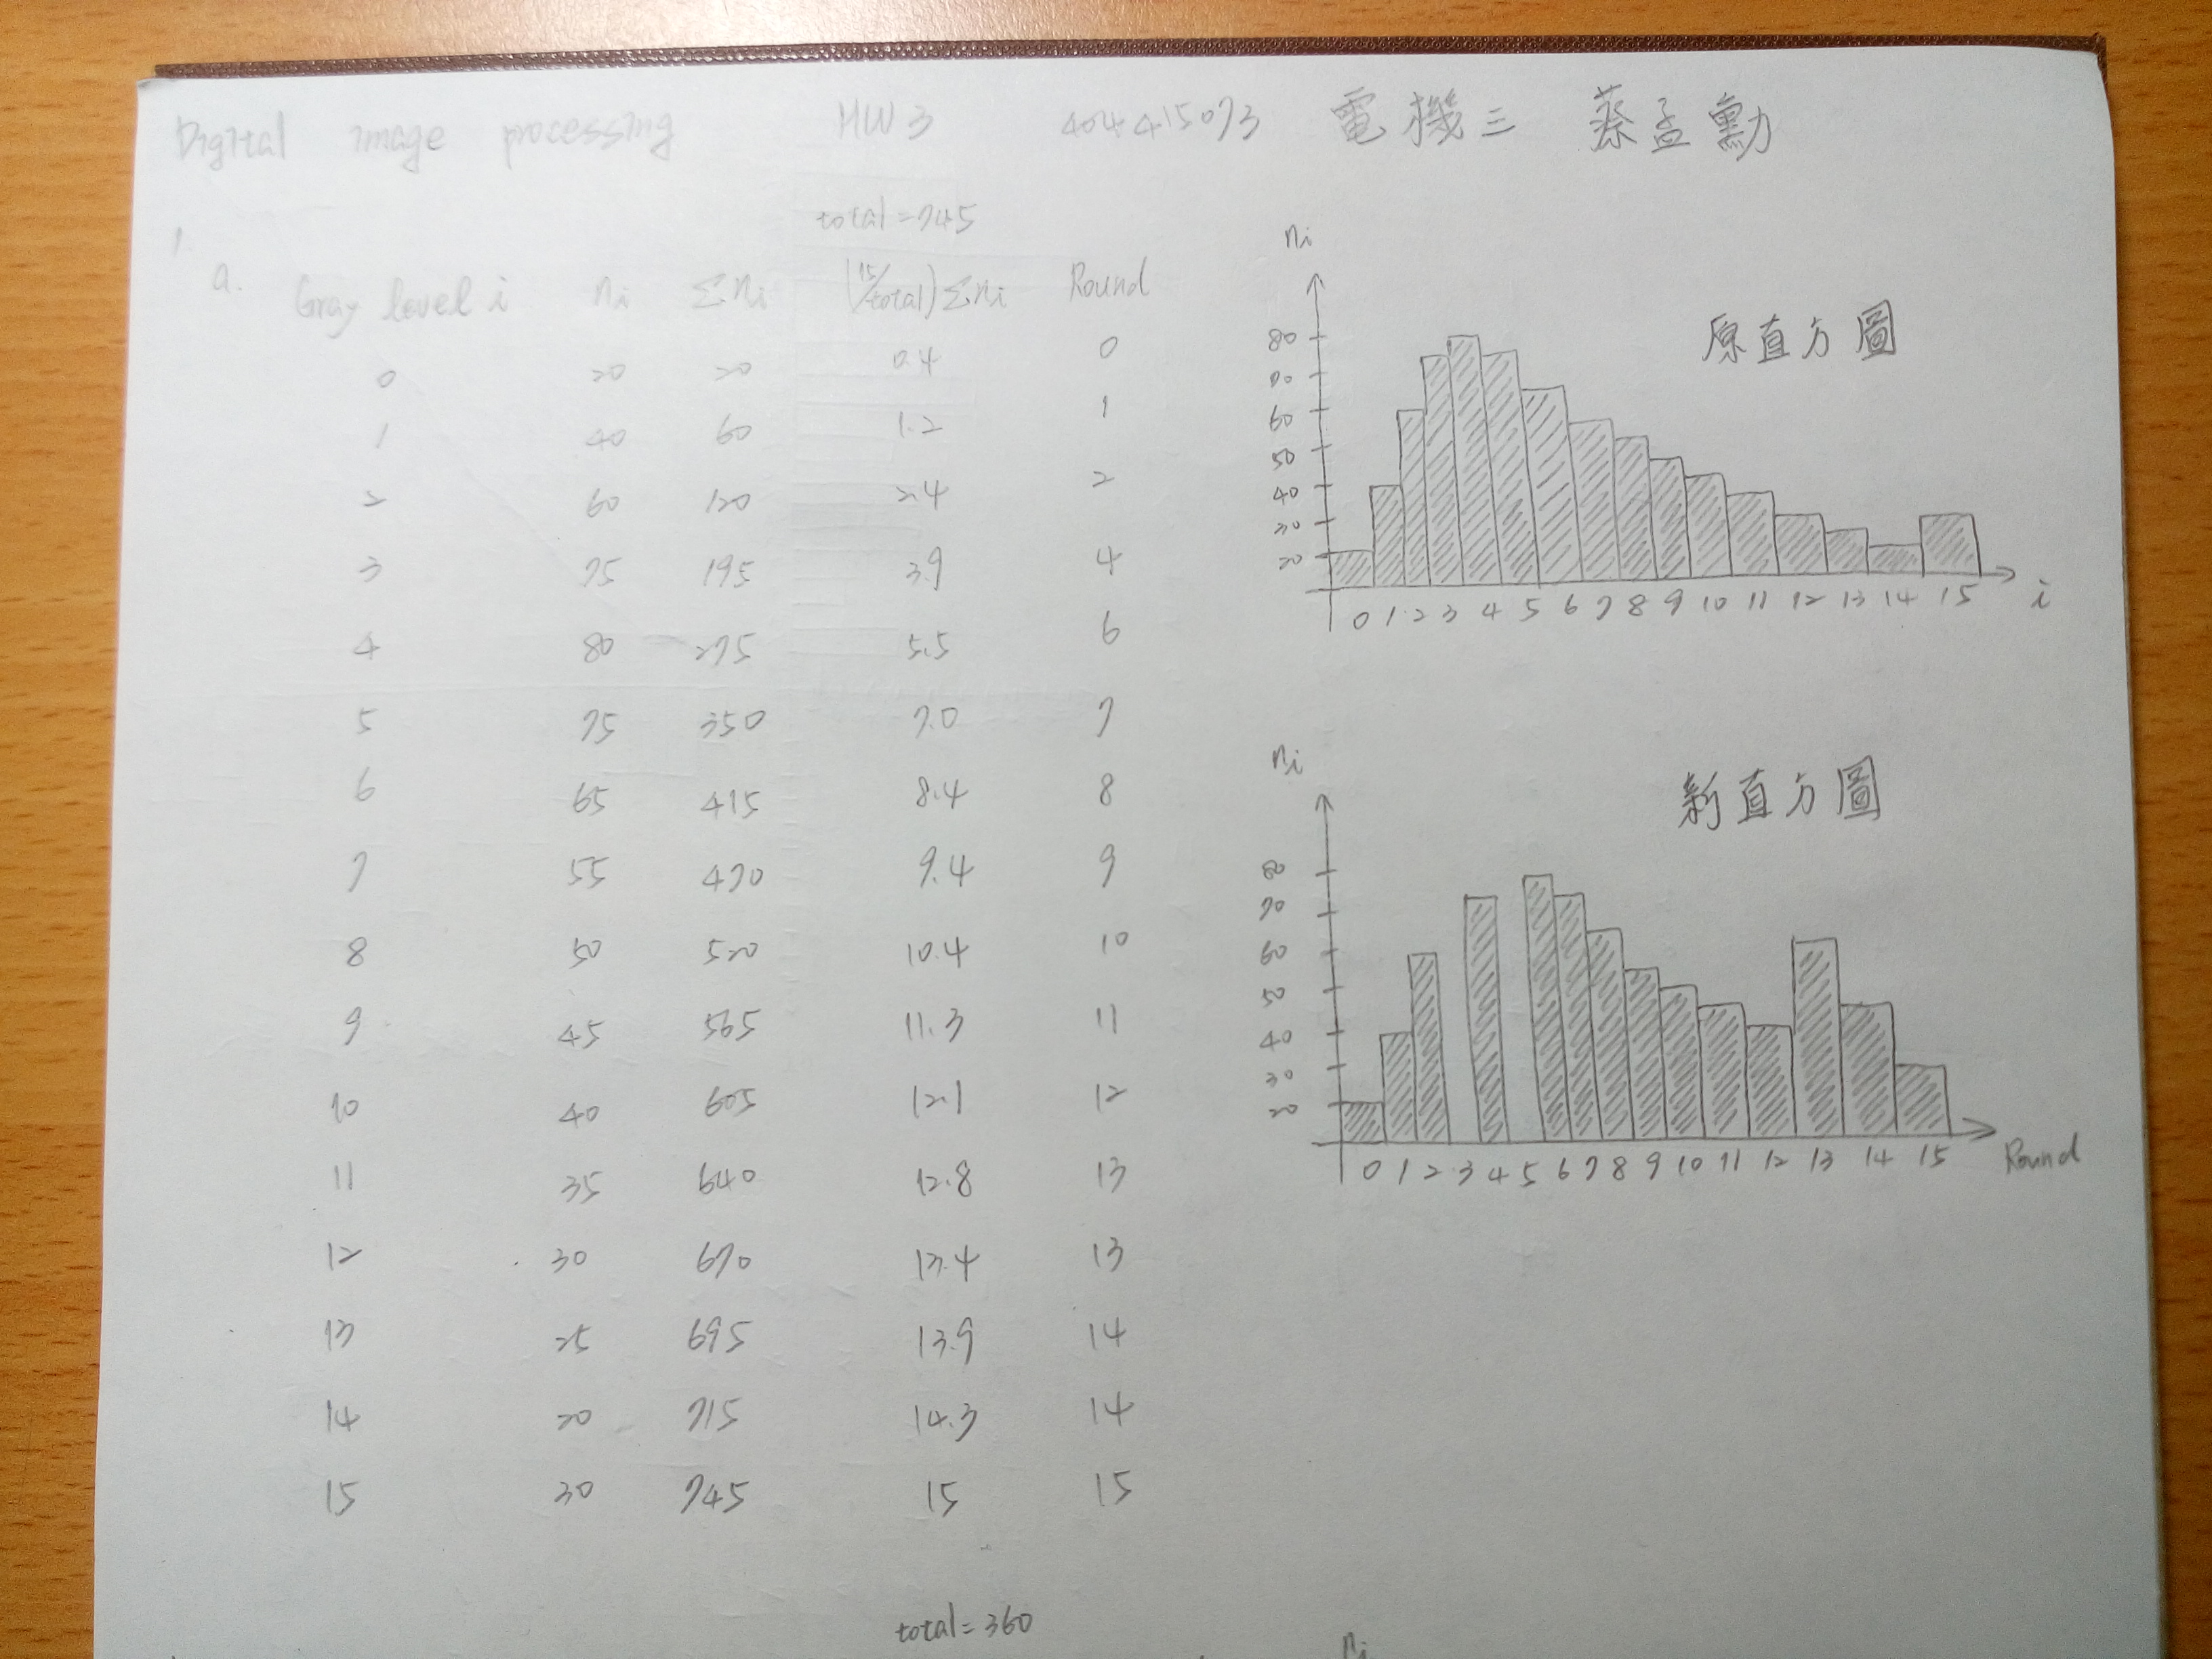 Digital image processing HW3 404415073 電機三 蔡孟勳
total=745
1.
a. Gray level i ni Σni (15/total)Σni Round
0 20 20 0.4 0
1 40 60 1.2 1
2 60 120 2.4 2
3 75 195 3.9 4
4 80 275 5.5 6
5 75 350 7.0 7
6 65 415 8.4 8
7 55 470 9.4 9
8 50 520 10.4 10
9 45 565 11.3 11
10 40 605 12.1 12
11 35 640 12.8 13
12 30 670 13.4 13
13 25 695 13.9 14
14 20 715 14.3 14
15 30 745 15 15
total=360
ni
原直方圖
80
70
60
50
40
30
20
0 1 2 3 4 5 6 7 8 9 10 11 12 13 14 15 i
ni
新直方圖
80
70
60
50
40
30
20
0 1 2 3 4 5 6 7 8 9 10 11 12 13 14 15 Round
ni